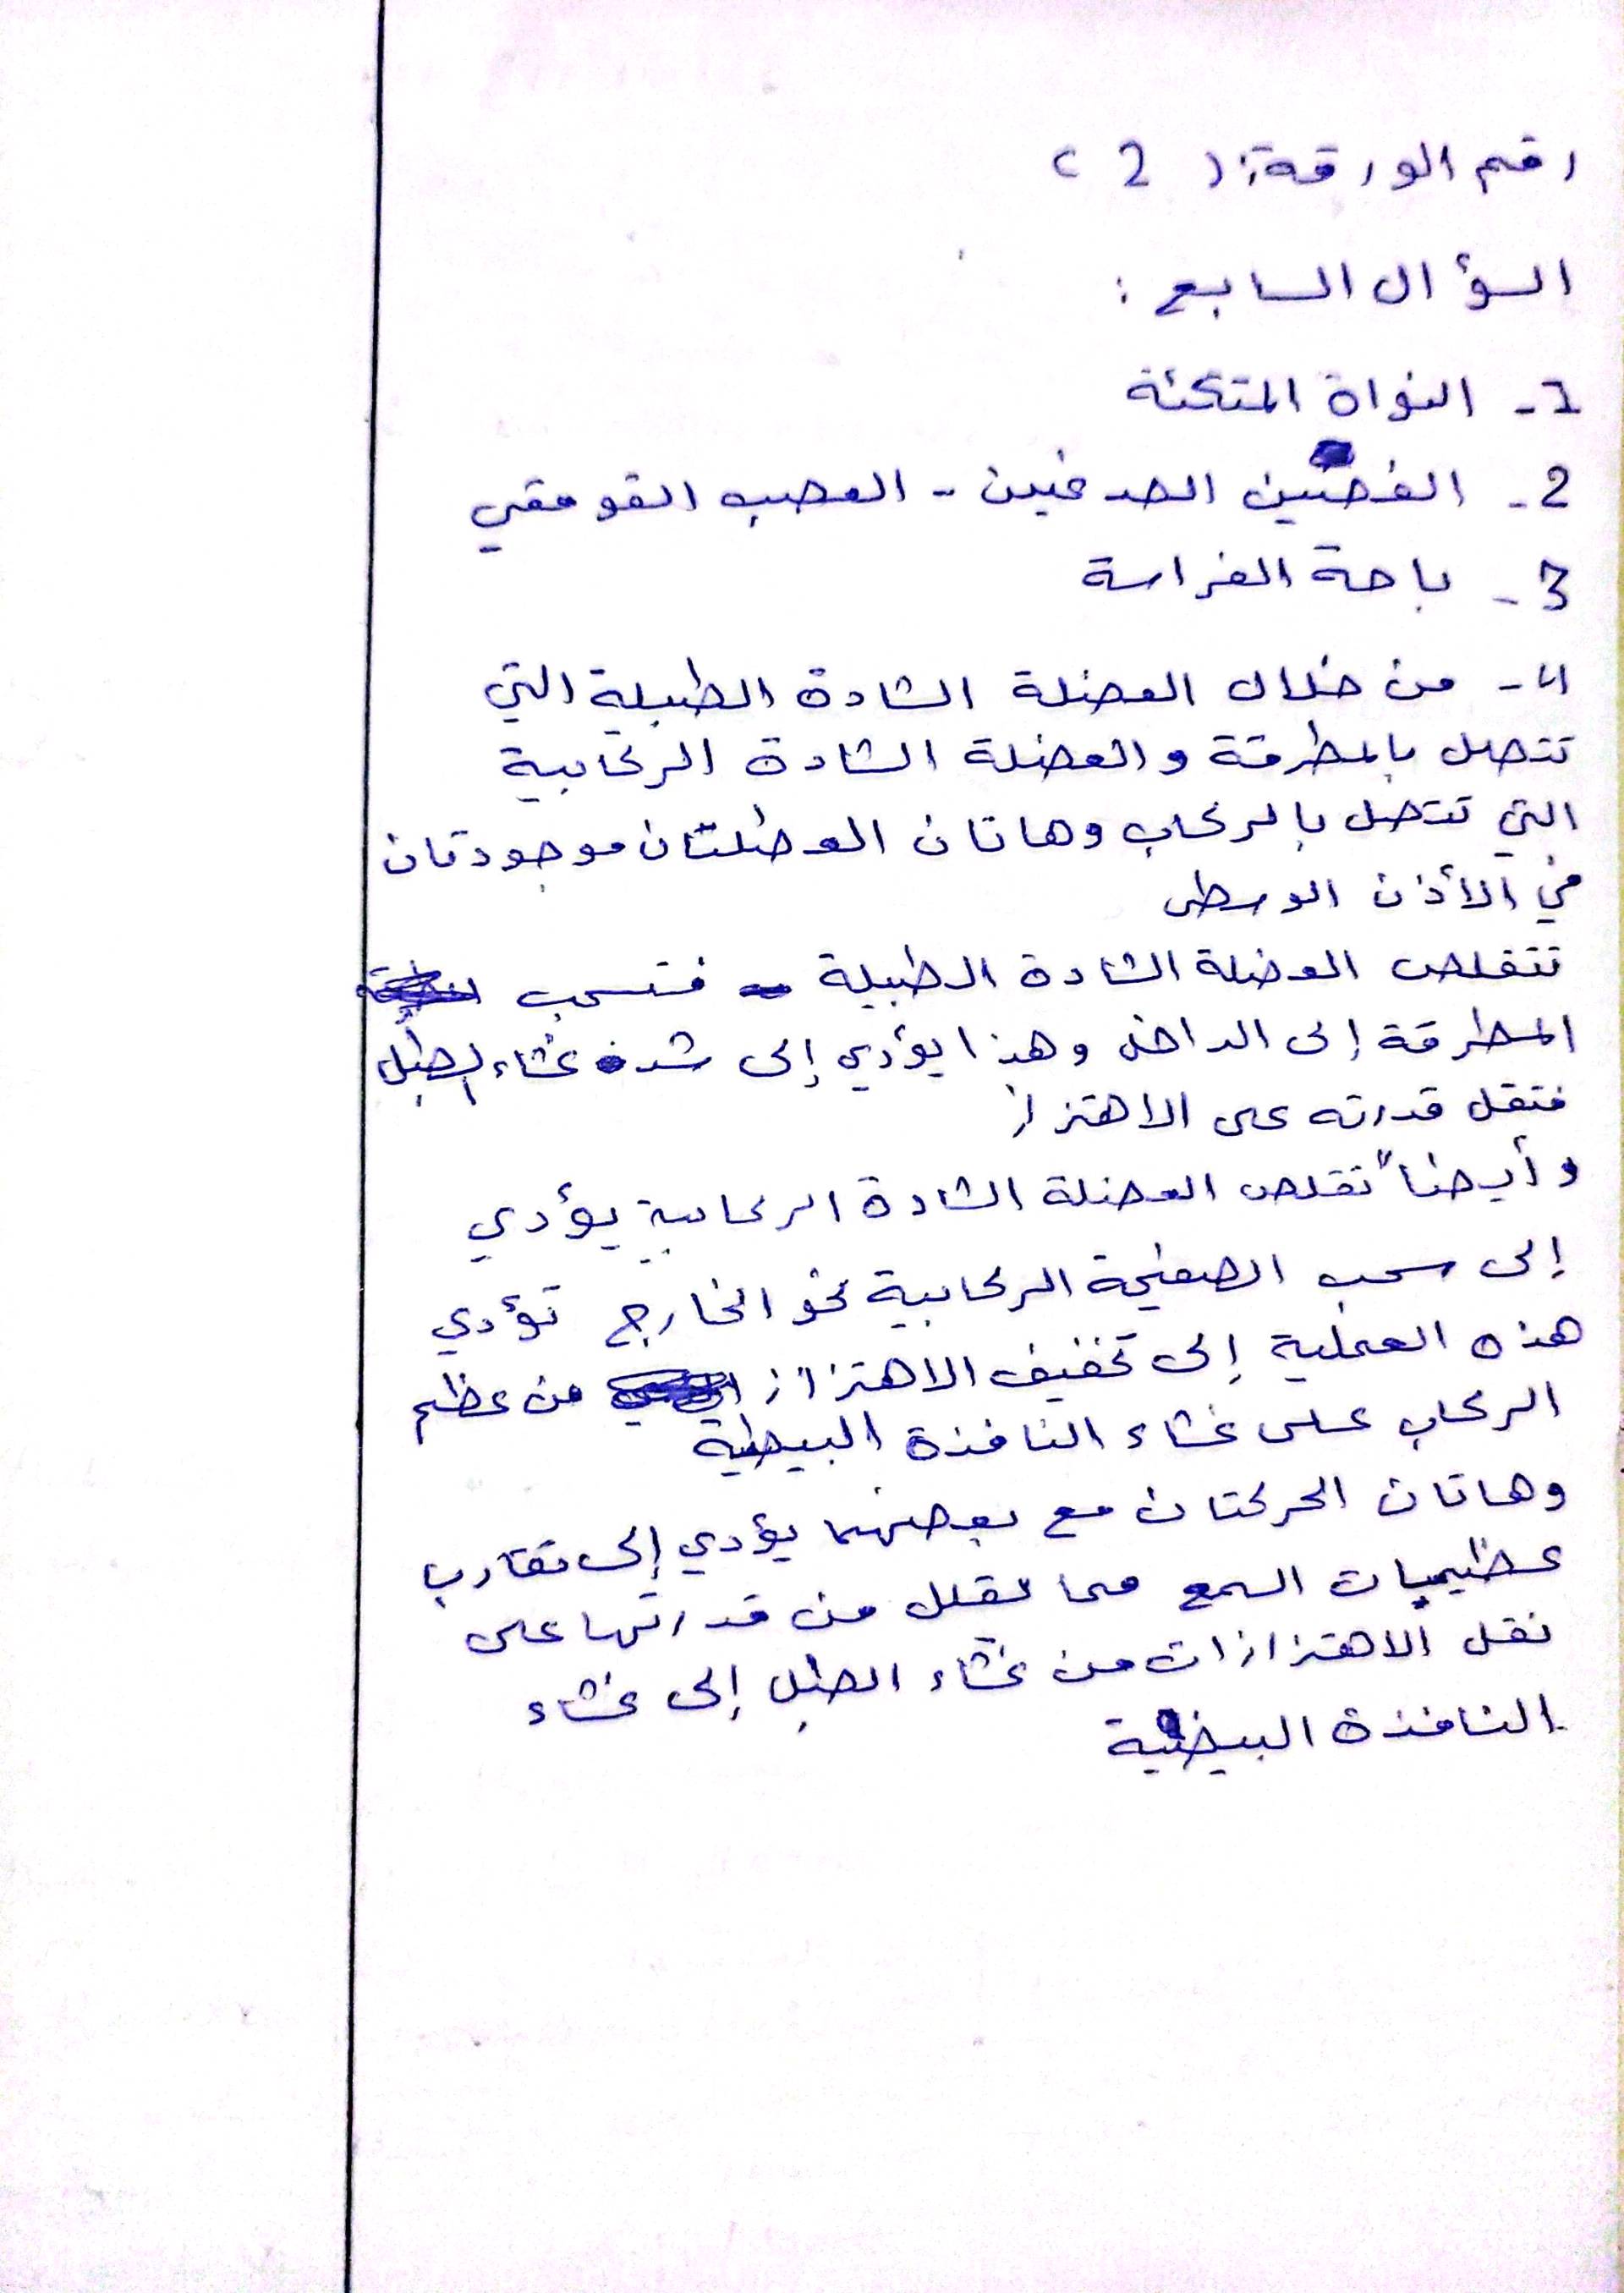 رقم الورقة: ( 2 )
السؤال السابع :
1- النواة المتكئة
2- الفصين الصدغيين - العصب القوقعي
3- باحة الفراسة
4- من خلال العضلة الشادة الطبلية التي
تتصل بالمطرقة والعضلة الشادة الركابية
التي تتصل بالركاب وهاتان العضلتان موجودتان
في الأذن الوسطى
تتقلص العضلة الشادة الطبلية فتسحب
المطرقة إلى الداخل وهذا يؤدي إلى شد غشاء الطبل
فتقل قدرته على الاهتزاز
وأيضاً تقلص العضلة الشادة الركابية يؤدي
إلى سحب الصفيحة الركابية نحو الخارج تؤدي
هذه العملية إلى تخفيف الاهتزاز من عظم
الركاب على غشاء النافذة البيضية
وهاتان الحركتان مع بعضهما يؤدي إلى تقارب
عظيمات السمع مما يقلل من قدرتها على
نقل الاهتزازات من غشاء الطبل إلى غشاء
النافذة البيضية